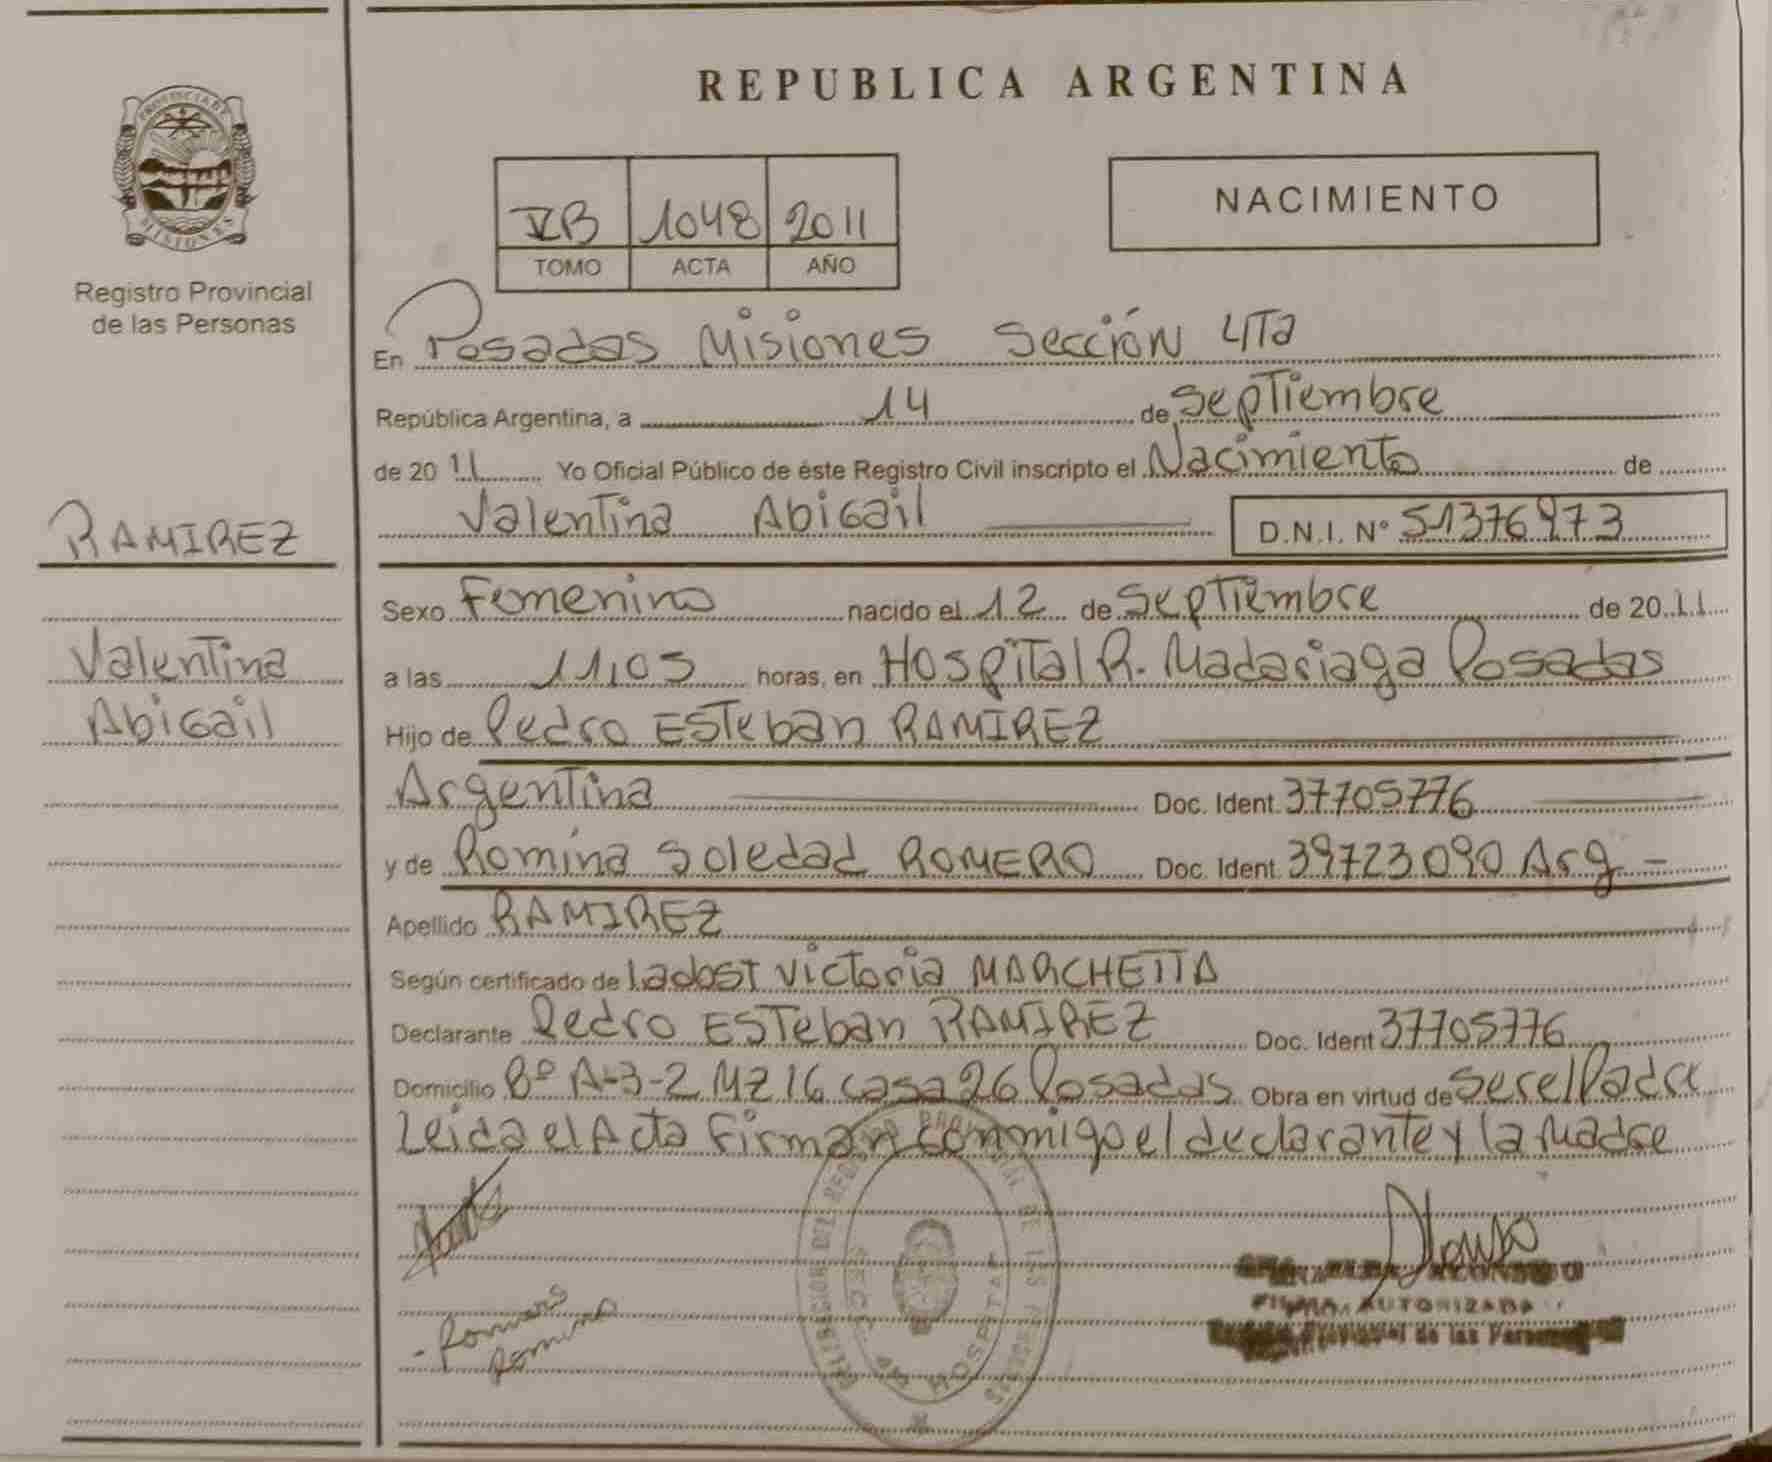 REPUBLICA ARGENTINA
PROVINCIA DE
MISIONES
Registro Provincial
de las Personas
VB 1048 2011
TOMO ACTA AÑO
NACIMIENTO
En Posadas Misiones Sección 4Ta
República Argentina, a 14 de Septiembre
de 2011 Yo Oficial Público de éste Registro Civil inscripto el Nacimiento de
Valentina Abigail D.N.I. Nº 51376973
RAMIREZ
Valentina
Abigail
Sexo Femenino nacido el 12 de Septiembre de 2011
a las 11,05 horas, en Hospital R. Madariaga Posadas
Hijo de Pedro Esteban RAMIREZ
Argentina Doc. Ident. 37705776
y de Romina Soledad ROMERO Doc. Ident. 39723090 Arg -
Apellido RAMIREZ
Según certificado de Victoria MARCHETTA
Declarante Pedro Esteban RAMIREZ Doc. Ident 37705776
Domicilio Bº A-3-2 MZ 16 casa 26 Posadas Obra en virtud de Ser el Padre
Leida el Acta Firman conmigo el declarante y la Madre
Romero
Romina
HOSPITAL
FIRMA AUTORIZADA
Provincial de las Personas